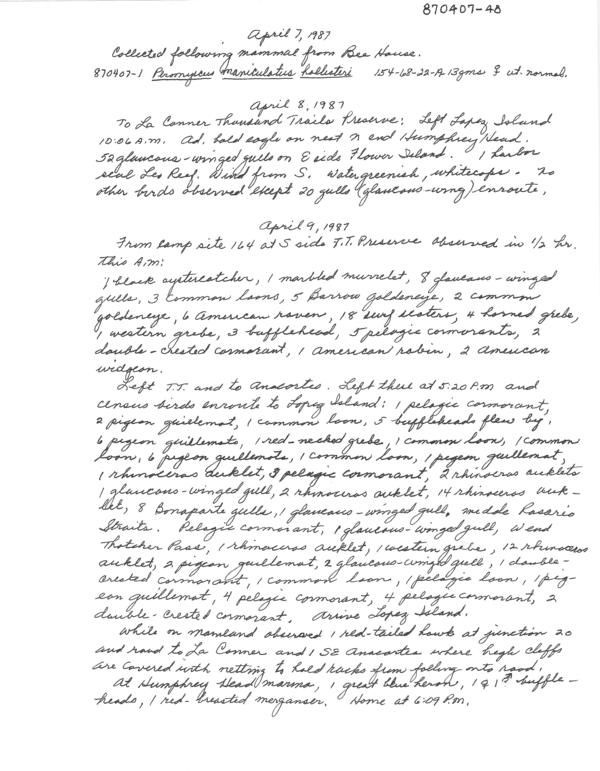 870407-48
April 7, 1987
Collected following mammal from Bee House.
870407-1 Peromyscus maniculatus hollisteri 154-68-22-A 13gms ♀ ut. normal.
April 8, 1987
To La Conner Thousand Trails Preserve: Left Lopez Island
10:06 A.M. Ad. bald eagle on nest N end Humphrey Head.
52 glaucous-winged gulls on E side Flower Island. 1 harbor
seal Leo Reef. Wind from S. Water greenish, whitecaps. No
other birds observed except 20 gulls (glaucous-wing) enroute.
April 9, 1987
From camp site 164 at S side T.T. Preserve observed in 1/2 hr.
this A.M:
1 black oystercatcher, 1 marbled murrelet, 8 glaucous-winged
gulls, 3 common loons, 5 Barrow goldeneye, 2 common
goldeneye, 6 American raven, 18 surf scoters, 4 horned grebe,
1 western grebe, 3 bufflehead, 5 pelagic cormorants, 2
double-crested cormorant, 1 american robin, 2 American
widgeon.
Left T.T. and to Anacortes. Left there at 5:20 P.M and
census birds enroute to Lopez Island: 1 pelagic cormorant,
2 pigeon guillemot, 1 common loon, 5 buffleheads flew by,
6 pigeon guillemots, 1 red-necked grebe, 1 common loon, 1 common
loon, 6 pigeon guillemots, 1 common loon, 1 pigeon guillemat,
1 rhinoceros auklet, 3 pelagic cormorant, 2 rhinoceros auklets
1 glaucous-winged gull, 2 rhinoceros auklet, 14 rhinoceros auk-
let, 8 Bonaparte gulls, 1 glaucous-winged gull, middle Rosario
Straits. Pelagic cormorant, 1 glaucous-winged gull, W end
Thatcher Pass, 1 rhinoceros auklet, 1 western grebe, 12 rhinoceros
auklet, 2 pigeon guillemat, 2 glaucous-winged gull, 1 double-
crested cormorant, 1 common loon, 1 pelagic loon, 1 pig-
eon guillemat, 4 pelagic cormorant, 4 pelagic cormorant, 2
double-crested cormorant. Arrive Lopez Island.
While on mainland observed 1 red-tailed hawk at junction 20
and road to La Conner and 1 SE Anacortes where high cliffs
are covered with netting to hold rocks from falling onto road.
At Humphrey Head marina, 1 great blue heron, 1 ♀ 1 ♂ buffle-
heads, 1 red-breasted merganser. Home at 6:09 P.M.